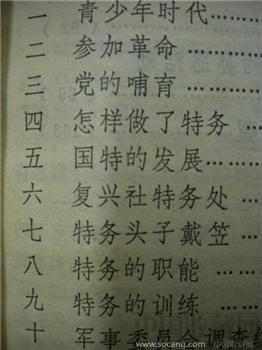 一 青少年时代……
二 参加革命………
三 党的哺育………
四 怎样做了特务…
五 国特的发展……
六 复兴社特务处
七 特务头子戴笠…
八 特务的职能……
九 特务的训练……
十 军事委员会调查
www.socang.com